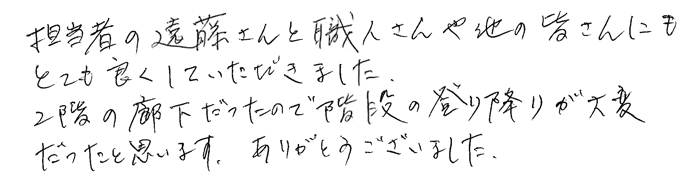 担当者の遠藤さんと職人さんや他の皆さんにも
とても良くしていただきました.
2階の廊下だったので階段の登り降りが大変
だったと思います. ありがとうございました.